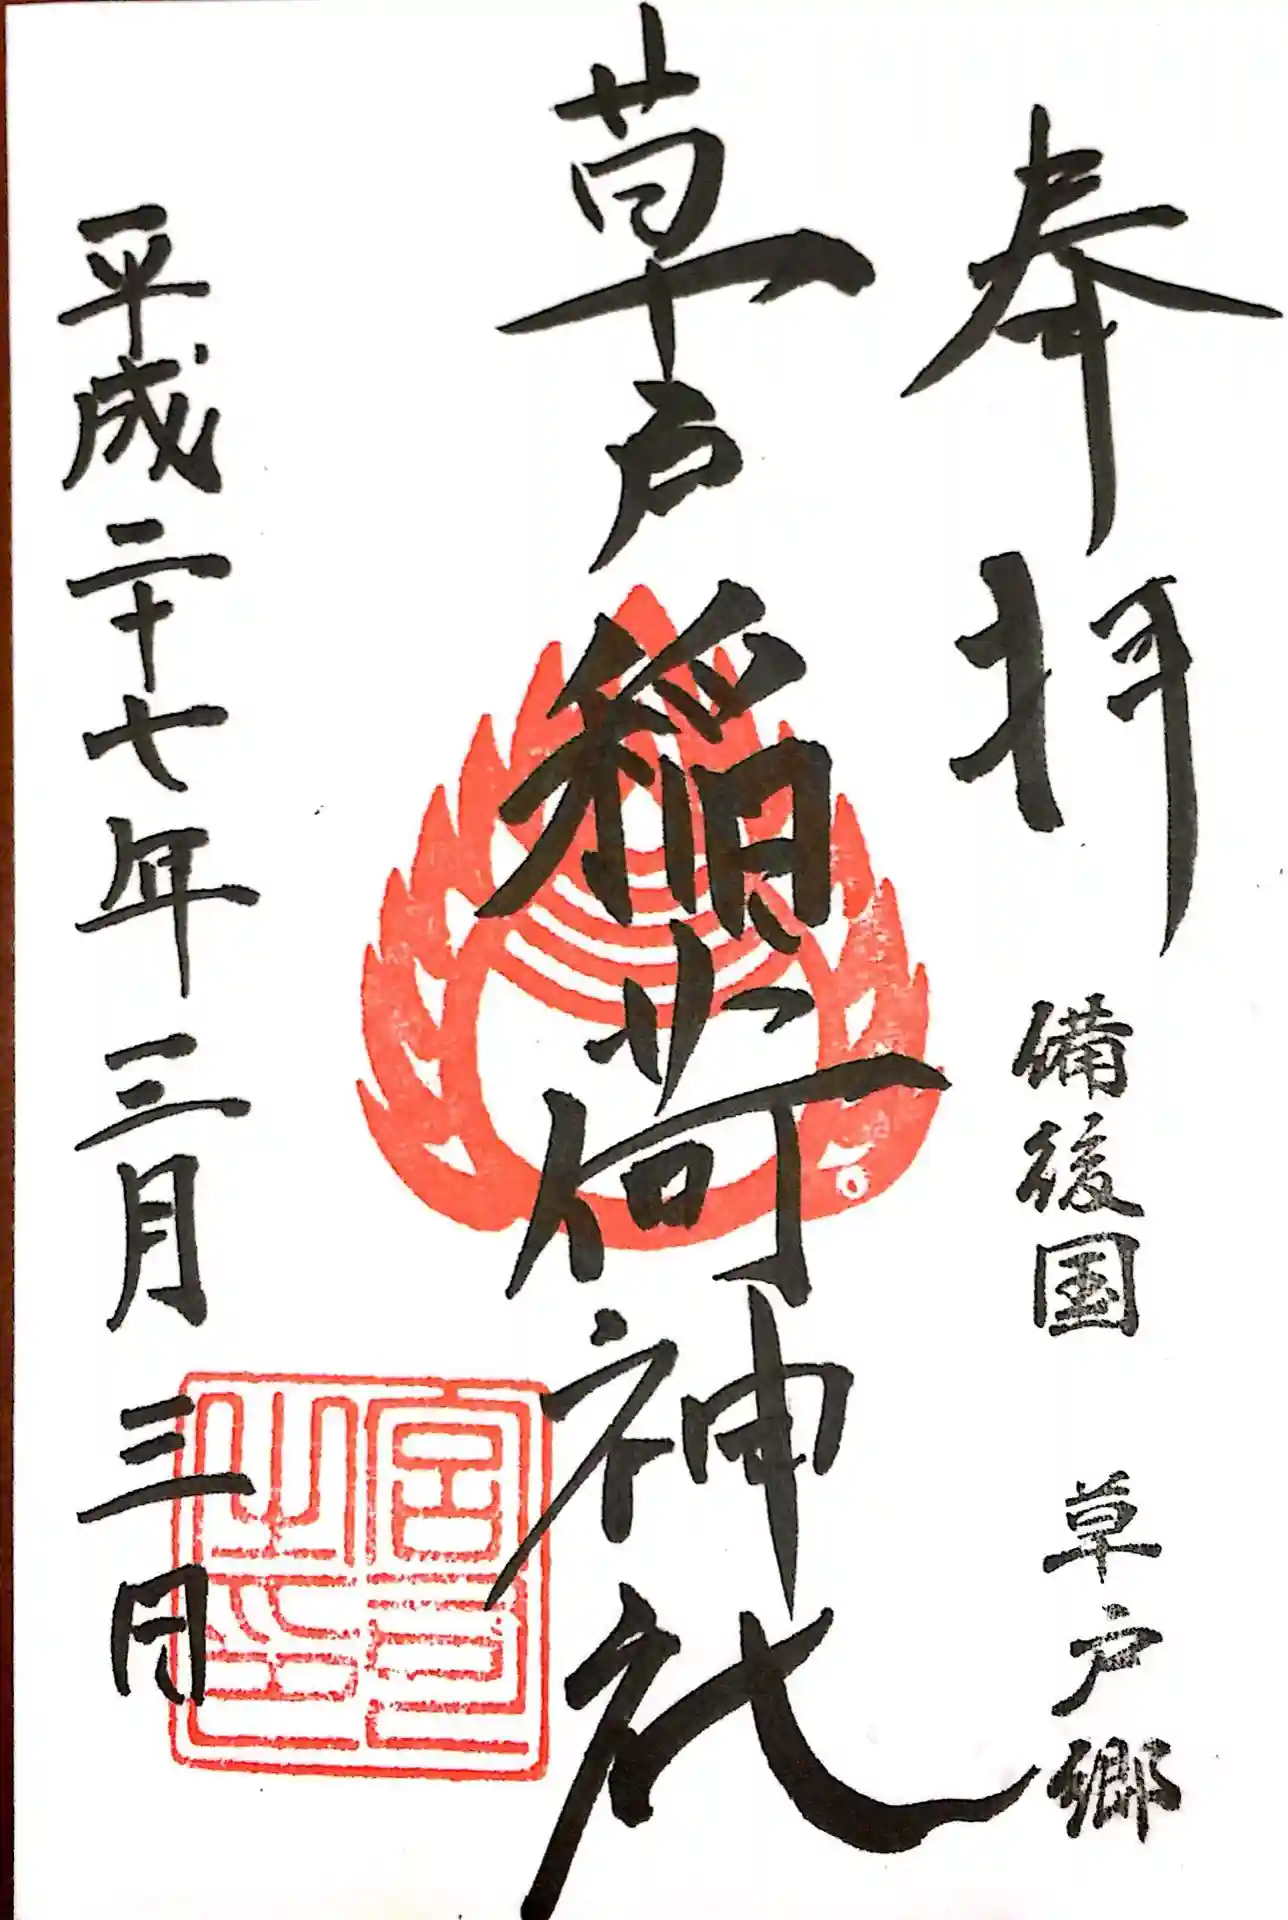 奉拝 備後国 草戸郷
草戸稲荷神社
平成二十七年三月三日
宮司之印